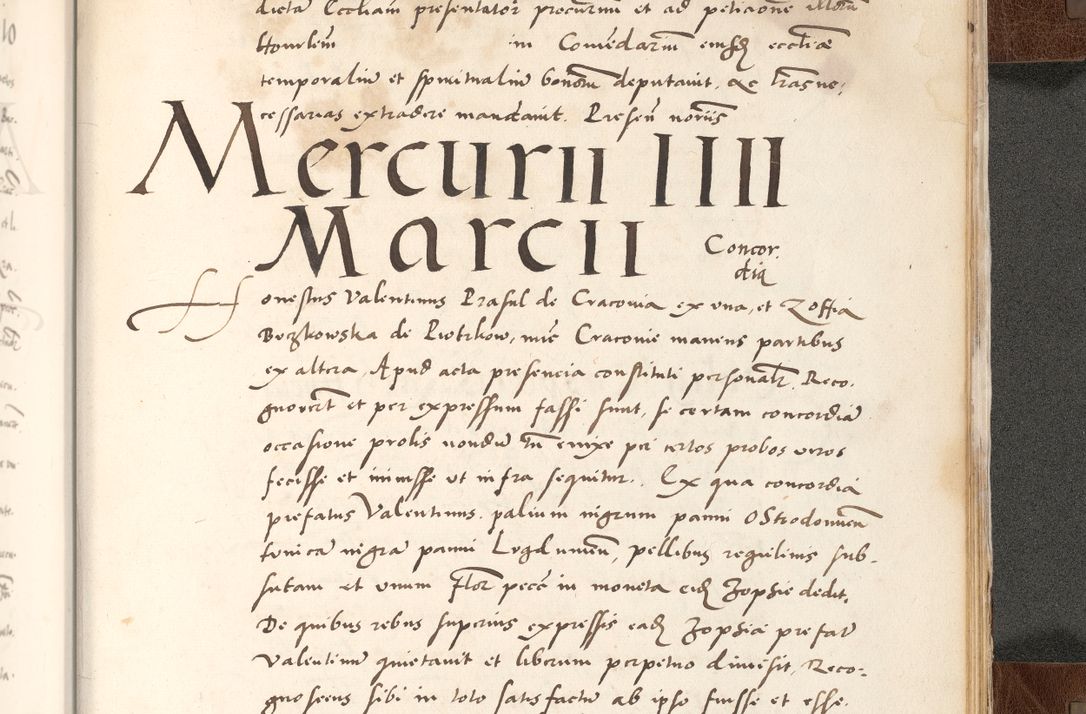 dictã Eccliam presentator procurum et ad peticione illoru
in Comẽdariũ eiusd ecclie
temporaliũ et spiritualiũ bonorum deputavit, &c trãs ne:
cessarias extradere mandavit. Presen
Mercurii IIII
Marcii
Concor
dia
Honestus Valentinus Prasul de Cracovia ex una, et Zoffia
Beczkowska de Piotrkow, nũc Cracovie manens partibus
ex altera, Apud acta presencia constituti personalr. Reco-
gnovert et per expressum fassi sunt, se certam concordiã
occasione prolis nondũ tñ enixe per certos probos viros
fecisse et iniuisse ut infra sequitur. Ex qua concordia
prefatus Valentinus palium nigrum panni
tunicã nigrã panni Lugdunen, pellibus sub-
sutam et unum Flor pecẽ in moneta eid Zophie dedit.
De quibus rebus superius expressis ead Zophia prefat
Valentinũ quietavit et liberum perpetuo dimisit, Reco-
gnoscens sibi in toto satisfactũ ab ipso fuisse et esse.